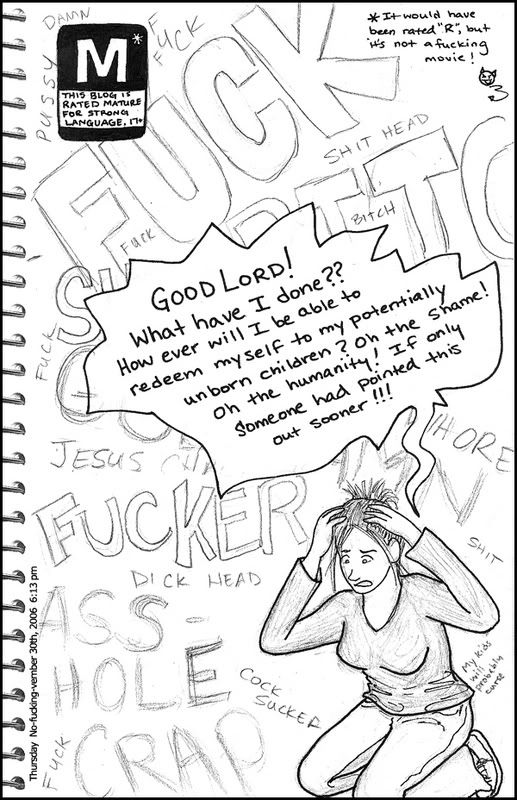 DAMN
PUSSY
F
FUCK
M*
THIS BLOG IS
RATED MATURE
FOR STRONG
LANGUAGE, 17+
*It would have
been rated "R", but
it's not a fucking
movie!
FUCK
SHIT HEAD
BITCH
Fuck
FUCK
GOOD LORD!
What have I done??
How ever will I be able to
redeem myself to my potentially
unborn children? Oh the shame!
Oh the humanity! If only
someone had pointed this
out sooner!!!
JESUS
HORE
FUCKER
SHIT
DICK HEAD
ASS-
HOLE
COCK
SUCKER
My kids
will
probably
curse
FUCK
CRAP
Thursday No-fucking-vember 30th, 2006 6:13 pm